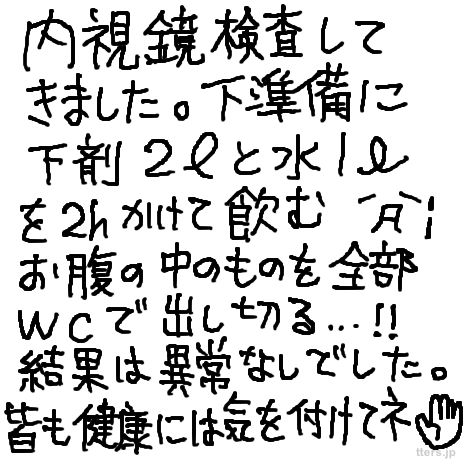 内視鏡検査して
きました。下準備に
下剤2ℓと水1ℓ
を2hかけて飲む ´Д`;
お腹の中のものを全部
WCで出し切る...!!
結果は異常なしでした。
皆も健康には気を付けてネ
tters.jp